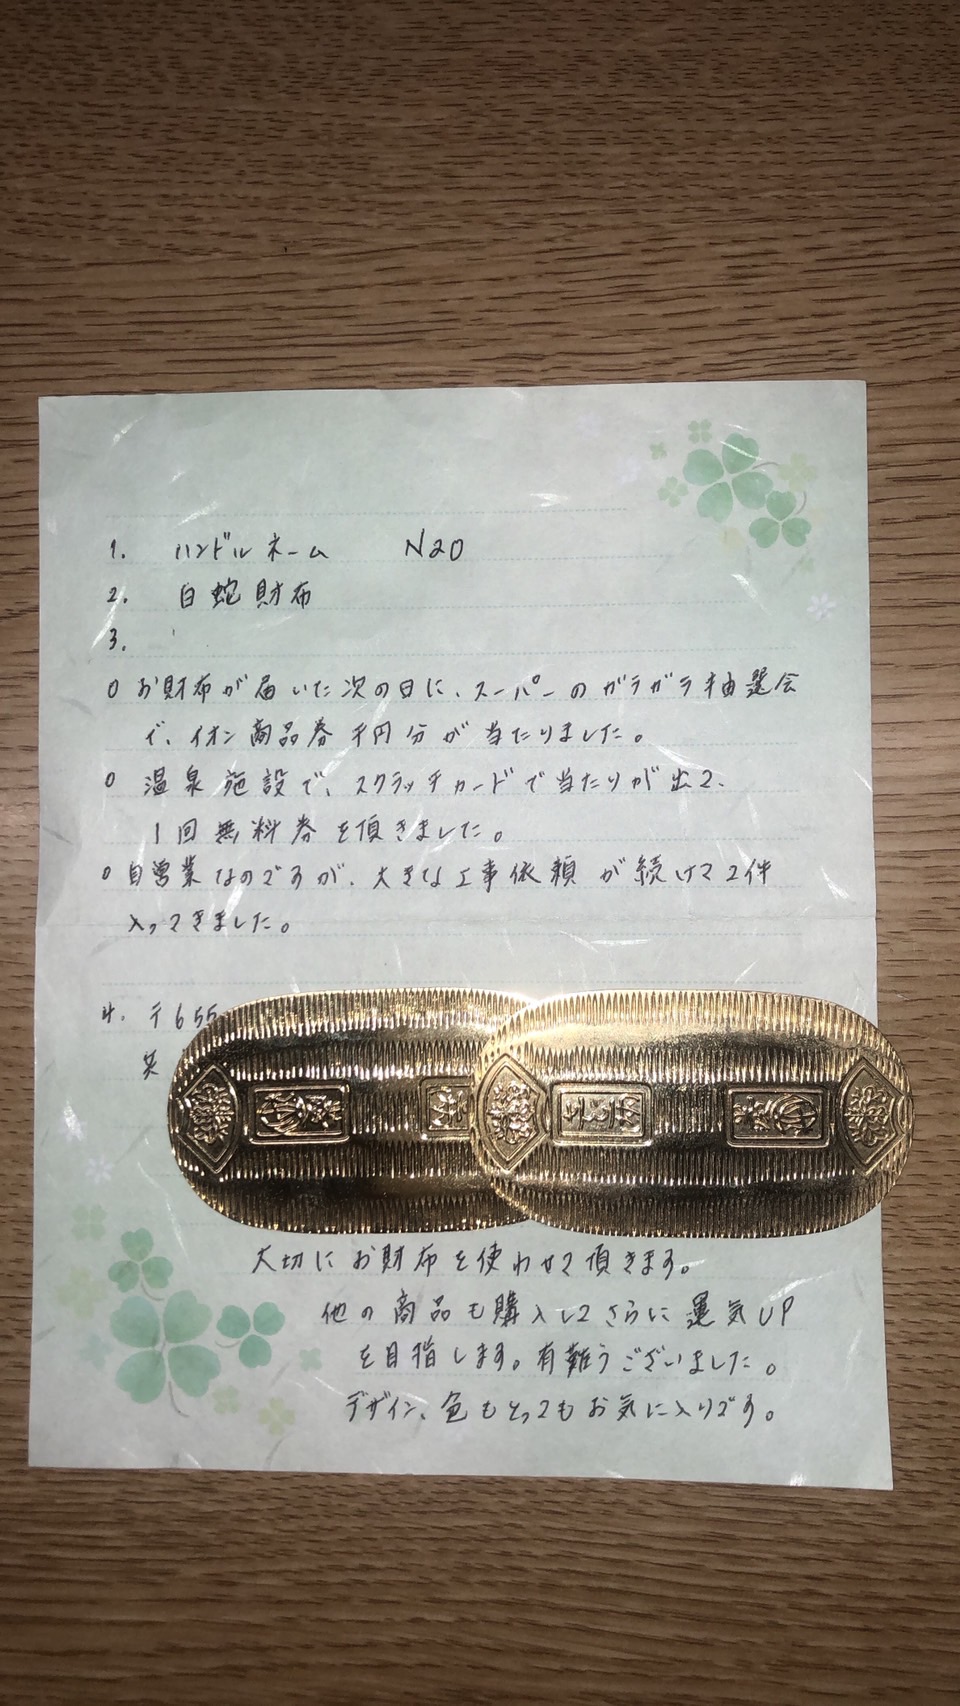 1. ハンドルネーム N20
2. 白蛇財布
3.
○ お財布が届いた次の日に、スーパーのガラガラ抽選会
で、イオン商品券千円分が当たりました。
○ 温泉施設で、スクラッチカードで当たりが出て、
1回無料券を頂きました。
○ 自営業なのですが、大きな工事依頼が続けて2件
入ってきました。
4. 〒655
大切にお財布を使わせて頂きます。
他の商品も購入してさらに運気UP
を目指します。有難うございました。
デザイン、色もとってもお気に入りです。